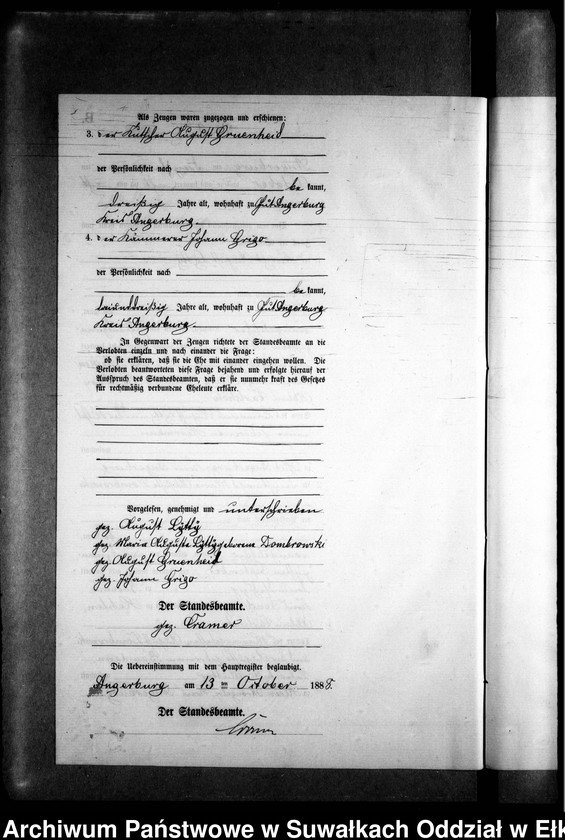 Als Zeugen waren zugezogen und erschienen:
3. der Kutscher August Gruenheid
der Persönlichkeit nach
be kannt,
dreißig Jahre alt, wohnhaft zu Gut Angerburg
Kreis Angerburg.
4. der Kämmerer Johann Grigo
der Persönlichkeit nach
be kannt,
Jahre alt, wohnhaft zu Gut Angerburg
Kreis Angerburg.
In Gegenwart der Zeugen richtete der Standesbeamte an die
Verlobten einzeln und nach einander die Frage:
ob sie erklären, daß sie die Ehe mit einander eingehen wollen. Die
Verlobten beantworteten diese Frage bejahend und erfolgte hierauf der
Ausspruch des Standesbeamten, daß er sie nunmehr kraft des Gesetzes
für rechtmäßig verbundene Eheleute erkläre.
Vorgelesen, genehmigt und unterschrieben
gez. August Lytty
gez. Maria Auguste Lytty geborene Dombrowski
gez. August Gruenheid
gez. Johann Grigo
Der Standesbeamte.
gez. Cramer
Die Uebereinstimmung mit dem Hauptregister beglaubigt.
Angerburg am 13 ten October 188
Der Standesbeamte.
Archiwum Państwowe w Suwałkach Oddział w Ełk